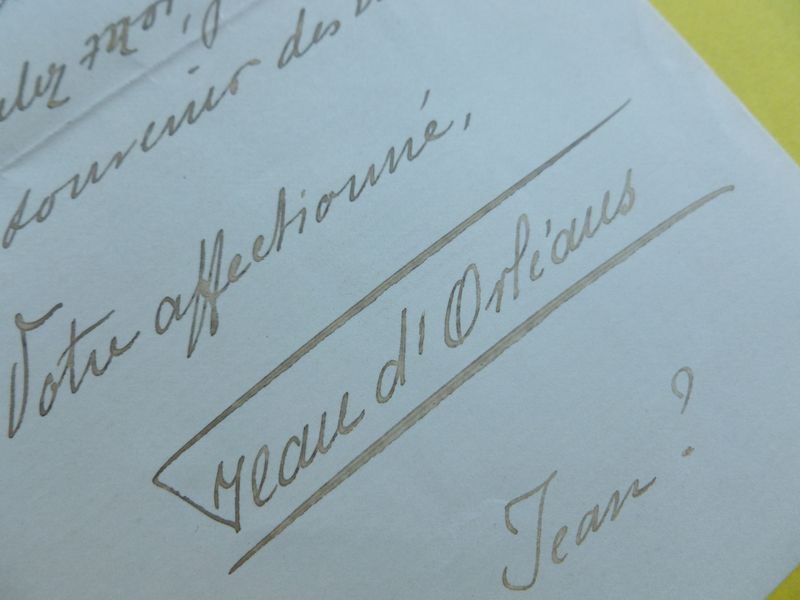 moi,
souvenir des
Votre affectionné,
Jean d'Orléans
Jean ?